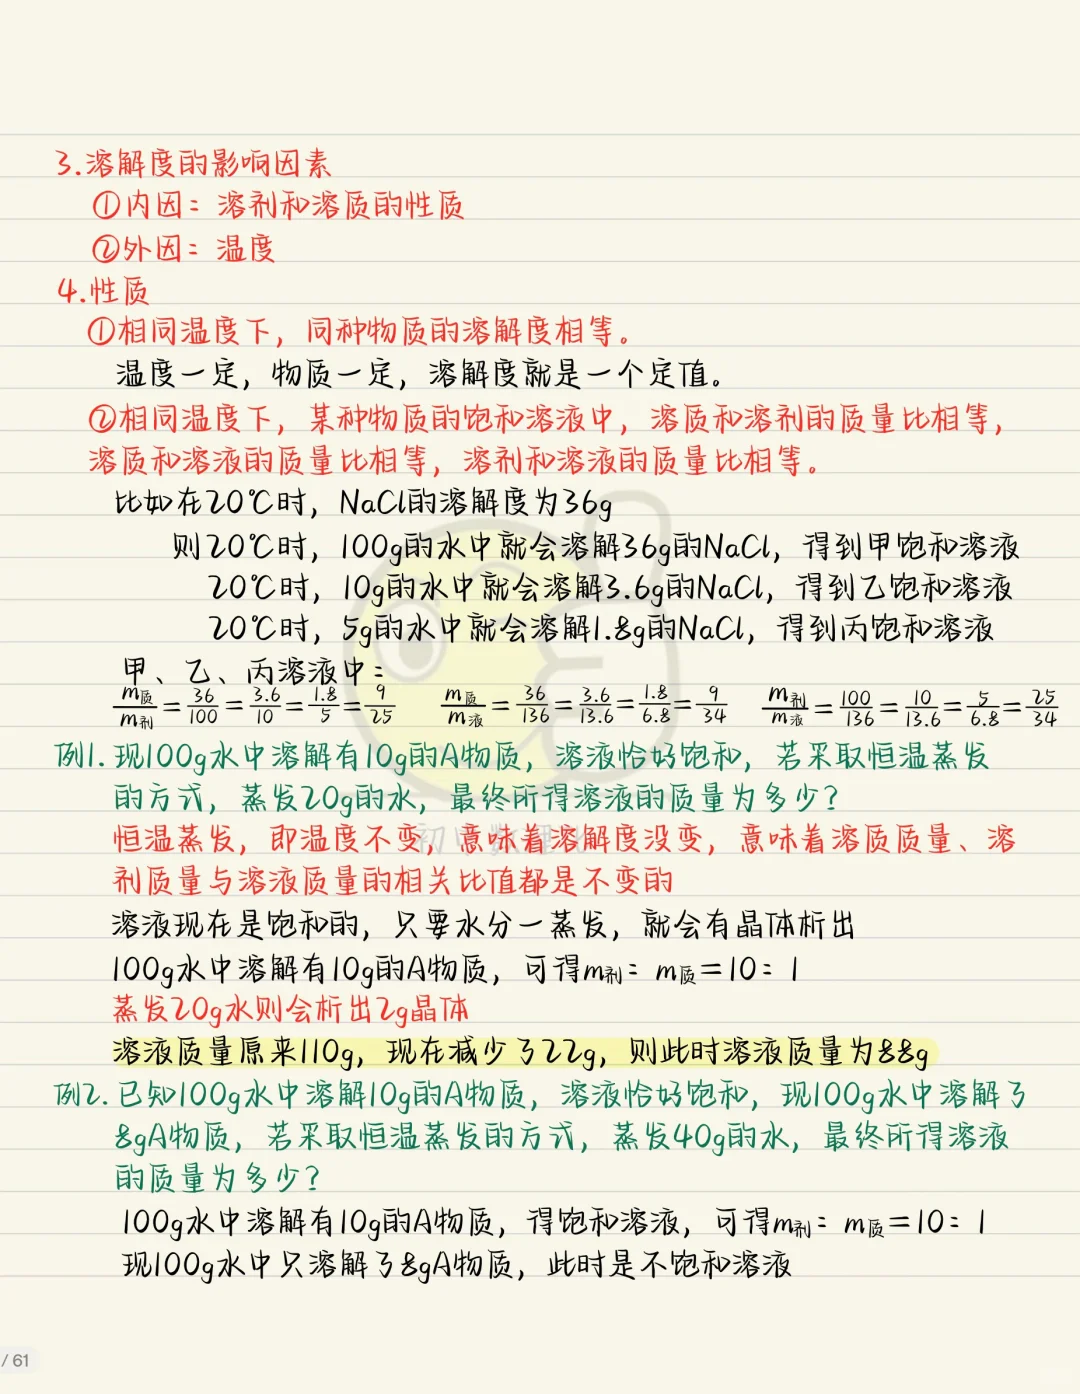 3.溶解度的影响因素
①内因：溶剂和溶质的性质
②外因：温度
4.性质
①相同温度下，同种物质的溶解度相等。
温度一定，物质一定，溶解度就是一个定值。
②相同温度下，某种物质的饱和溶液中，溶质和溶剂的质量比相等，
溶质和溶液的质量比相等，溶剂和溶液的质量比相等。
比如在20℃时，NaCl的溶解度为36g
则20℃时，100g的水中就会溶解36g的NaCl，得到甲饱和溶液
20℃时，10g的水中就会溶解3.6g的NaCl，得到乙饱和溶液
20℃时，5g的水中就会溶解1.8g的NaCl，得到丙饱和溶液
甲、乙、丙溶液中：
m质/m剂=36/100=3.6/10=1.8/5=9/25 m质/m液=36/136=3.6/13.6=1.8/6.8=9/34 m剂/m液=100/136=10/13.6=5/6.8=25/34
例1.现100g水中溶解有10g的A物质，溶液恰好饱和，若采取恒温蒸发
的方式，蒸发20g的水，最终所得溶液的质量为多少？
恒温蒸发，即温度不变，意味着溶解度没变，意味着溶质质量、溶
剂质量与溶液质量的相关比值都是不变的
溶液现在是饱和的，只要水分一蒸发，就会有晶体析出
100g水中溶解有10g的A物质，可得m剂：m质=10：1
蒸发20g水则会析出2g晶体
溶液质量原来110g，现在减少了22g，则此时溶液质量为88g
例2.已知100g水中溶解10g的A物质，溶液恰好饱和，现100g水中溶解了
8gA物质，若采取恒温蒸发的方式，蒸发40g的水，最终所得溶液
的质量为多少？
100g水中溶解有10g的A物质，得饱和溶液，可得m剂：m质=10：1
现100g水中只溶解了8gA物质，此时是不饱和溶液
/ 61